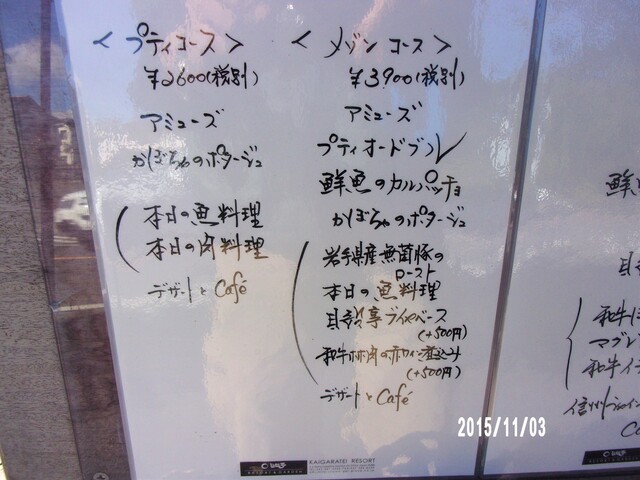 <プティコース>
¥2600(税別)
アミューズ
かぼちゃのポタージュ
本日の魚料理
本日の肉料理
デザートとCafé
<メゾンコース>
¥3900(税別)
アミューズ
プティオードブル
鮮魚のカルパッチョ
かぼちゃのポタージュ
岩手県産無菌豚の
ロースト
本日の魚料理
貝殻亭ブイヤベース
(+500円)
和牛ホホ肉の赤ワイン煮込み
(+500円)
デザートとCafé
鮮
貝
和牛
マグレ
和牛イ
信州
Ca
KAIGARATEI RESORT
2015/11/03